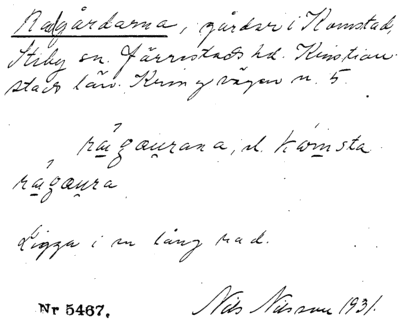 Radgårdarna, gårdar i Komstad,
Stiby sn. Järrestads hd. Kristian-
stads län. Kring vägen n. 5.
rågaurana, el. kómsta
rågaura
Ligga i en lång rad.
Nr 5467. Nils Nilsson 1931.